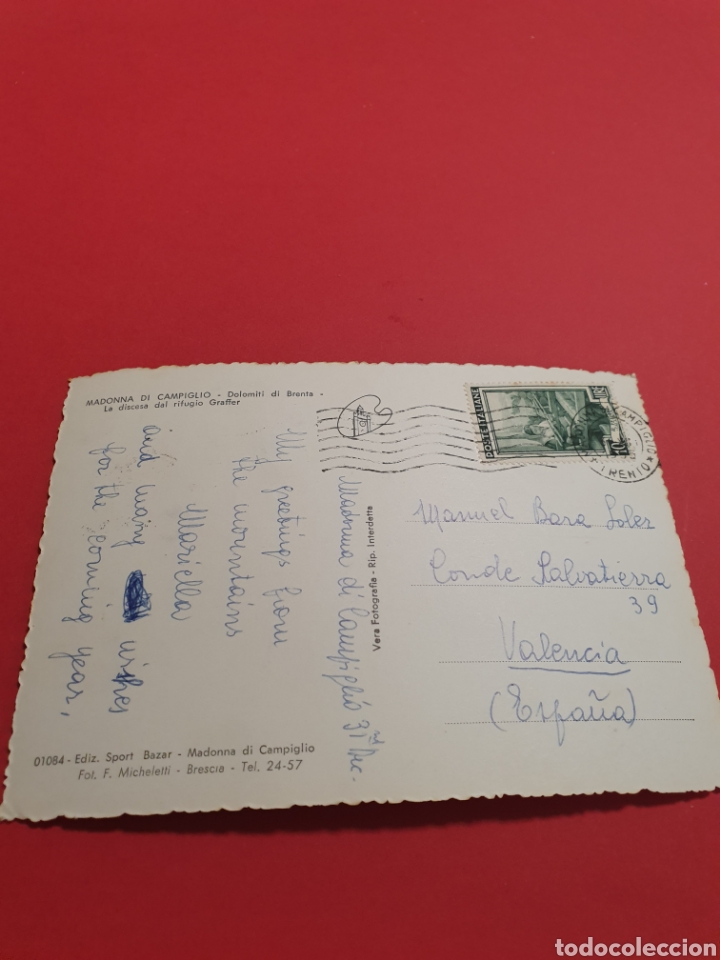 MADONNA DI CAMPIGLIO - Dolomiti di Brenta -
La discesa dal rifugio Graffer
POSTE ITALIANE
10
CAMPIGLIO
TRENTO
Madonna di Campiglio 31 Dec.
My greetings from
the mountains
Mariella
and many wishes
for the coming year,
Vera Fotografia - Rip. Interdetta
Manuel Bara Soler
Conde Salvatierra
39
Valencia
(España)
01084 - Ediz. Sport Bazar - Madonna di Campiglio
Fot. F. Micheletti - Brescia - Tel. 24-57
todocoleccion